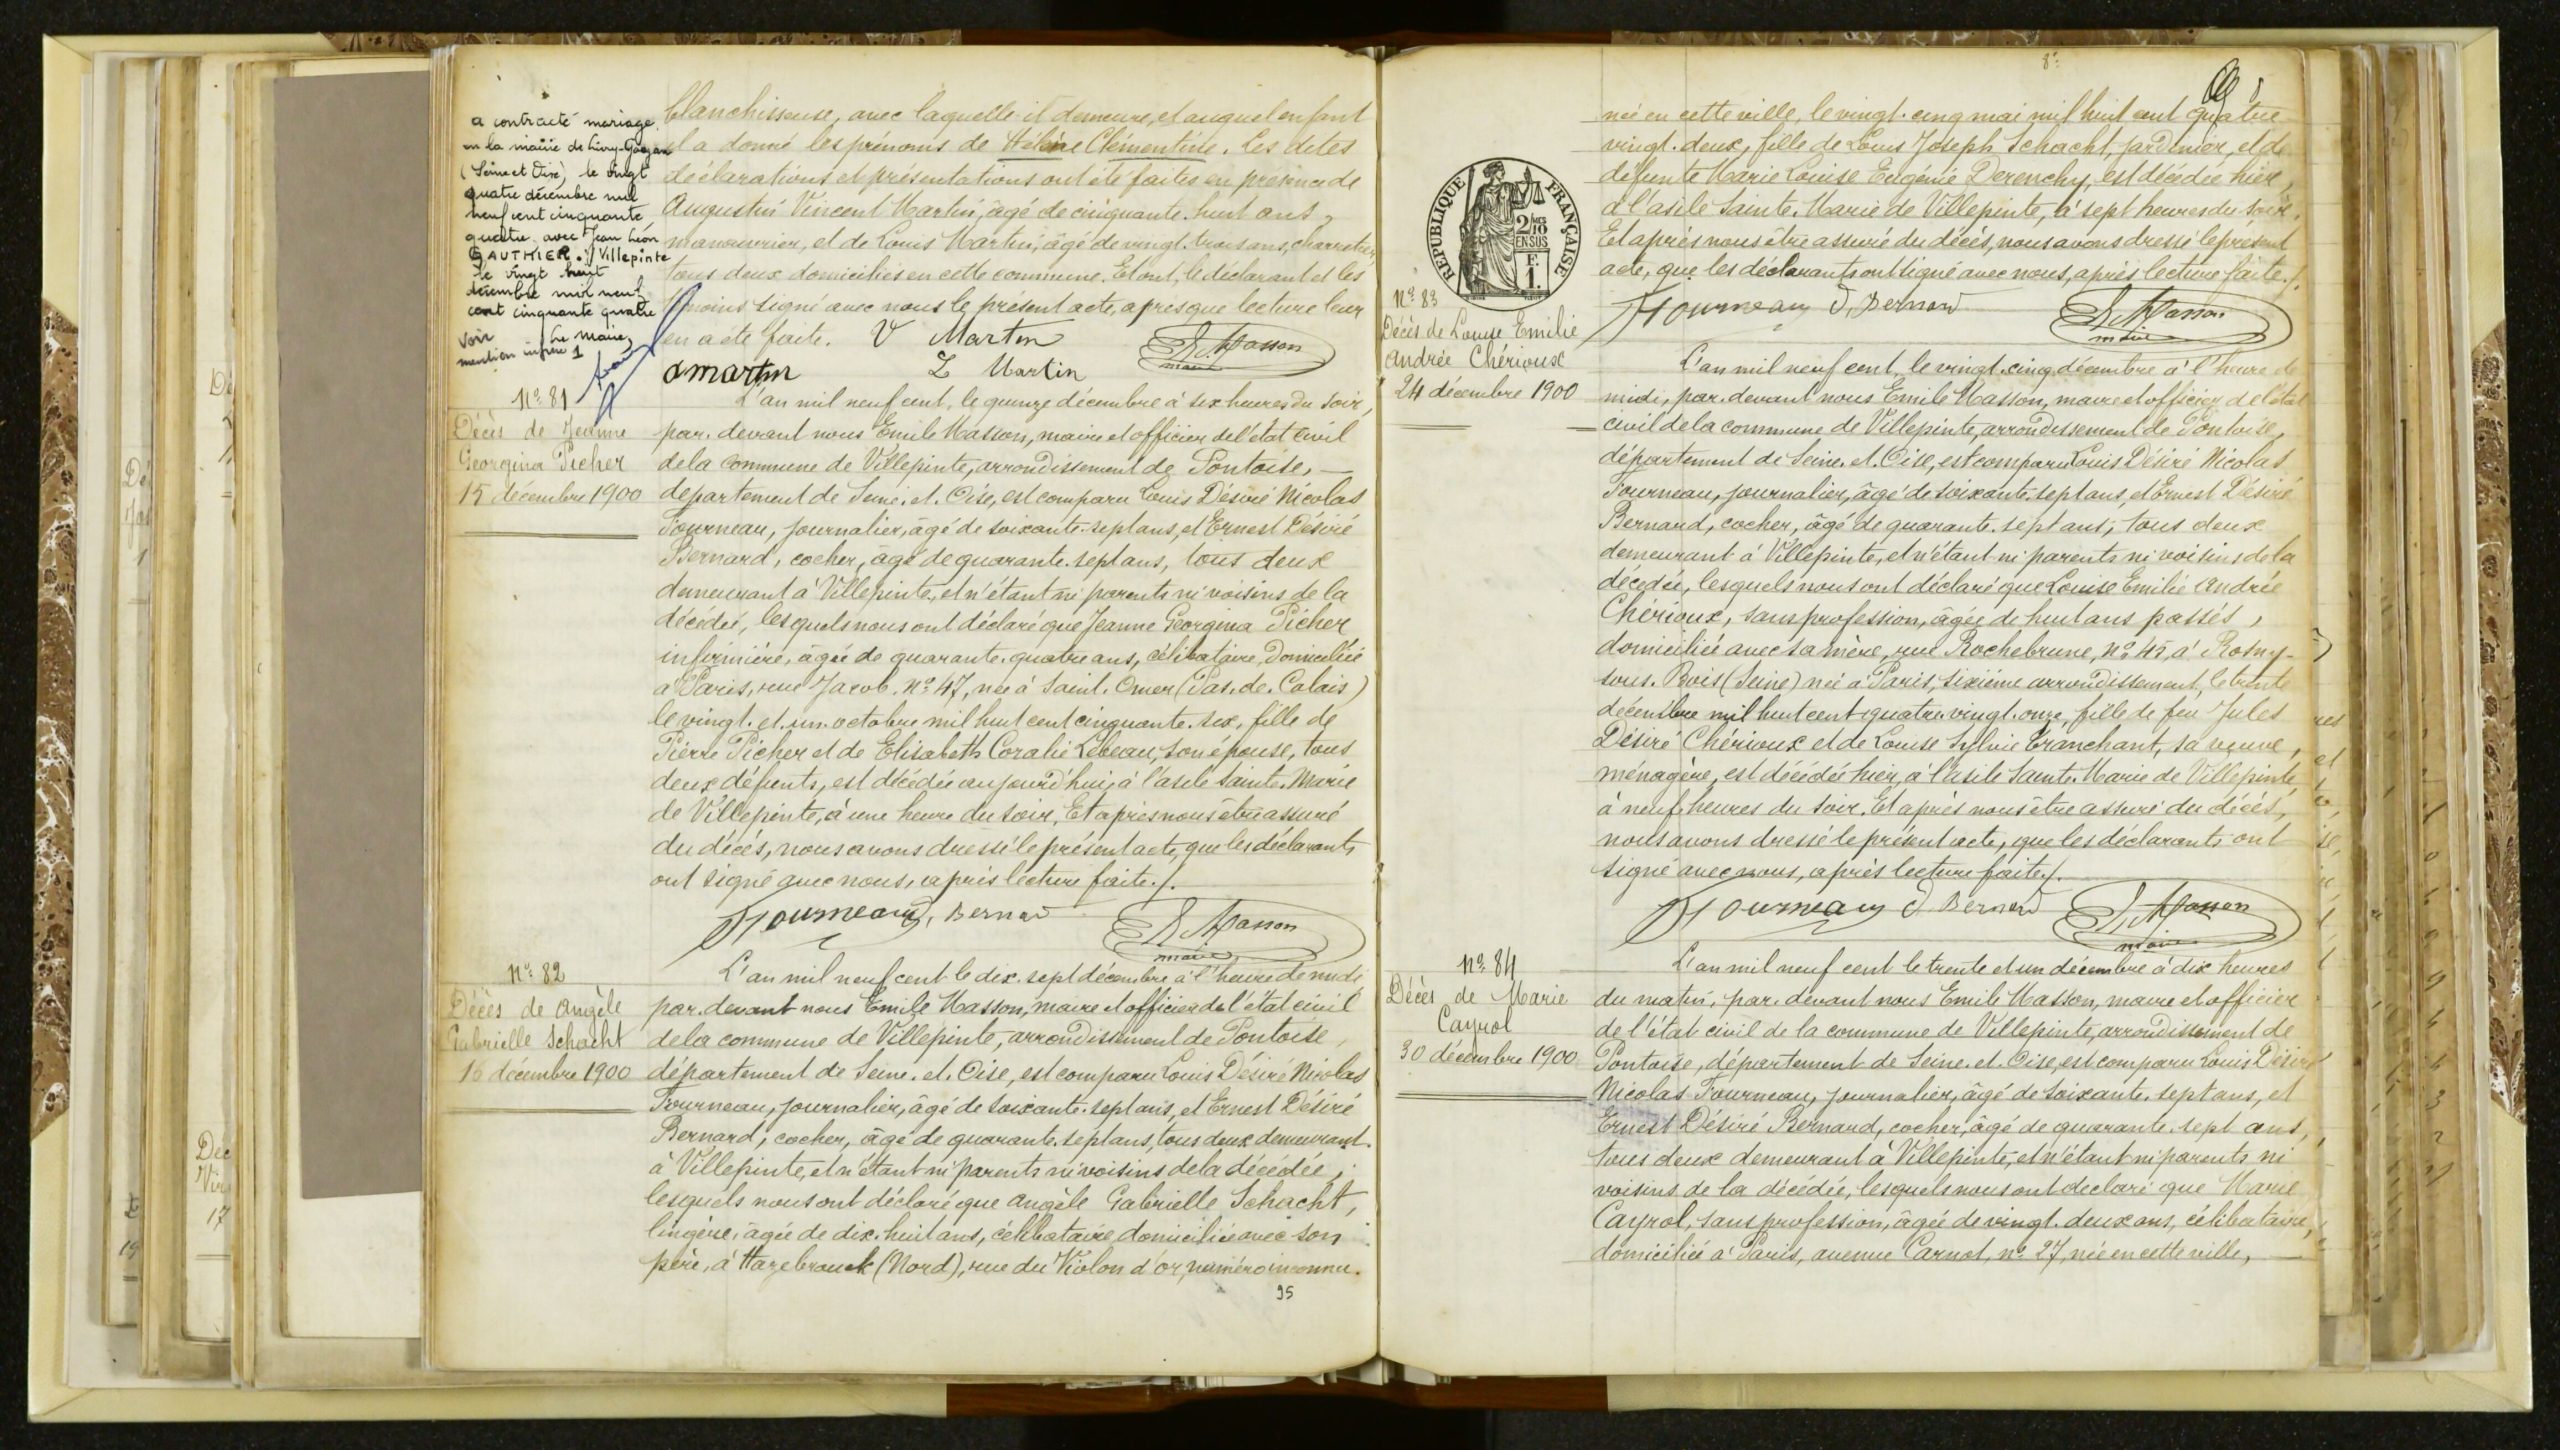 a contracté mariage
en la mairie de Livry-Gargan
(Seine et Oise) le vingt
quatre décembre mil
neuf cent cinquante
quatre avec Jean Léon
GAUTHIER ./. Villepinte
le vingt huit
décembre mil neuf
cent cinquante quatre
Le Maire,
voir
mention infra 1
blanchisseuse, avec laquelle il demeure, et auquel enfant
il a donné les prénoms de Hélène Clémentine. Les dites
déclarations et présentations ont été faites en présence de
Augustin Vincent Martin, âgé de cinquante-huit ans,
manouvrier, et de Louis Martin, âgé de vingt-trois ans, charretier,
tous deux domiciliés en cette commune. Et ont, le déclarant et les
témoins signé avec nous le présent acte, après que lecture leur
en a été faite. V Martin
E. Masson
maire
amartin L Martin
N° 81
Décès de Jeanne
Georgina Picher
15 décembre 1900
L'an mil neuf cent, le quinze décembre à six heures du soir,
par-devant nous Emile Masson, maire et officier de l'état civil
de la commune de Villepinte, arrondissement de Pontoise,
département de Seine-et-Oise, est comparu Louis Désiré Nicolas
Fourneau, journalier, âgé de soixante-sept ans, et Ernest Désiré
Bernard, cocher, âgé de quarante-sept ans, tous deux
demeurant à Villepinte, et n'étant ni parents ni voisins de la
décédée, lesquels nous ont déclaré que Jeanne Georgina Picher
infirmière, âgée de quarante-quatre ans, célibataire, domiciliée
à Paris, rue Jacob, N° 47, née à Saint-Omer (Pas-de-Calais)
le vingt-et-un octobre mil huit cent cinquante-six, fille de
Pierre Picher et de Elisabeth Coralie Lebeau, son épouse, tous
deux défunts, est décédée aujourd'hui, à l'asile Sainte-Marie
de Villepinte, à une heure du soir. Et après nous être assuré
du décès, nous avons dressé le présent acte, que les déclarants
ont signé avec nous, après lecture faite./.
Fourneau D, Bernard
E. Masson
maire
N° 82
Décès de Angèle
Gabrielle Schacht
16 décembre 1900
L'an mil neuf cent le dix-sept décembre à l'heure de midi
par-devant nous Emile Masson, maire et officier de l'état civil
de la commune de Villepinte, arrondissement de Pontoise,
département de Seine-et-Oise, est comparu Louis Désiré Nicolas
Fourneau, journalier, âgé de soixante-sept ans, et Ernest Désiré
Bernard, cocher, âgé de quarante-sept ans, tous deux demeurant
à Villepinte, et n'étant ni parents ni voisins de la décédée,
lesquels nous ont déclaré que Angèle Gabrielle Schacht,
lingère, âgée de dix-huit ans, célibataire, domiciliée avec son
père, à Hazebrouck (Nord), rue du Violon d'or, numéro inconnu.
95
née en cette ville, le vingt-cinq mai mil huit cent quatre
vingt-deux, fille de Louis Joseph Schacht, jardinier, et de
défunte Marie Louise Eugénie Derenchy, est décédée hier,
à l'asile Sainte-Marie de Villepinte, à sept heures du soir.
Et après nous être assuré du décès, nous avons dressé le présent
acte, que les déclarants ont signé avec nous, après lecture faite./.
Fourneau D, Bernard
E. Masson
maire
REPUBLIQUE FRANÇAISE
2/10
EN SUS
F.
1.
N° 83
Décès de Louise Emilie
Andrée Chérioux
24 décembre 1900
L'an mil neuf cent, le vingt-cinq décembre à l'heure de
midi, par-devant nous Emile Masson, maire et officier de l'état
civil de la commune de Villepinte, arrondissement de Pontoise,
département de Seine-et-Oise, est comparu Louis Désiré Nicolas
Fourneau, journalier, âgé de soixante-sept ans, et Ernest Désiré
Bernard, cocher, âgé de quarante-sept ans, tous deux
demeurant à Villepinte, et n'étant ni parents ni voisins de la
décédée, lesquels nous ont déclaré que Louise Emilie Andrée
Chérioux, sans profession, âgée de huit ans passés,
domiciliée avec sa mère, rue Rochebrune, N° 45, à Rosny-
sous-Bois (Seine) née à Paris, sixième arrondissement, le trente
décembre mil huit cent quatre-vingt-onze, fille de feu Jules
Désiré Chérioux et de Louise Sylvie Tranchant, sa veuve,
ménagère, est décédée hier, à l'asile Sainte-Marie de Villepinte
à neuf heures du soir. Et après nous être assuré du décès,
nous avons dressé le présent acte, que les déclarants ont
signé avec nous, après lecture faite./.
Fourneau D Bernard
E. Masson
maire
N° 84
Décès de Marie
Cayrol
30 décembre 1900
L'an mil neuf cent le trente et un décembre à dix heures
du matin, par-devant nous Emile Masson, maire et officier
de l'état civil de la commune de Villepinte, arrondissement de
Pontoise, département de Seine-et-Oise, est comparu Louis Désiré
Nicolas Fourneau, journalier, âgé de soixante-sept ans, et
Ernest Désiré Bernard, cocher, âgé de quarante-sept ans,
tous deux demeurant à Villepinte, et n'étant ni parents ni
voisins de la décédée, lesquels nous ont déclaré que Marie
Cayrol, sans profession, âgée de vingt-deux ans, célibataire,
domiciliée à Paris, avenue Carnot, N° 27, née en cette ville,